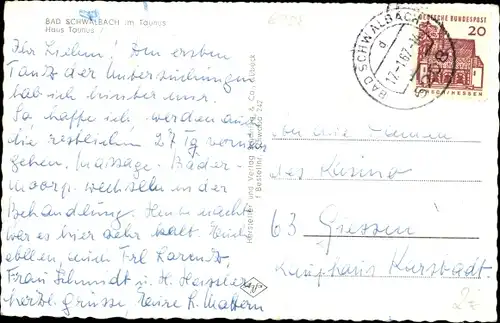 BAD SCHWALBACH im Taunus
Haus Taunus
Ihr Lieben! Den ersten
Tanz der Untersuchungen
hab ich hinter mir.
So hoffe ich werden auch
die restlichen 27 Tg vorüber
gehen. Massage - Bäder -
Moorp. wechseln in der
Behandlung. Heute nacht
war es hier sehr kalt.
allen, auch Frl. Lorentz,
Frau Schmidt u. H. Hassler
herzl. Grüsse, Eure R. Mattern
Hersteller und Verlag & Co.
Bestellnr. 242
BAD SCHWALBACH
d
17.-1.67
DEUTSCHE BUNDESPOST
20
LORSCH/HESSEN
An die Damen
des Kasino
63 Giessen
Kaufhaus Karstadt